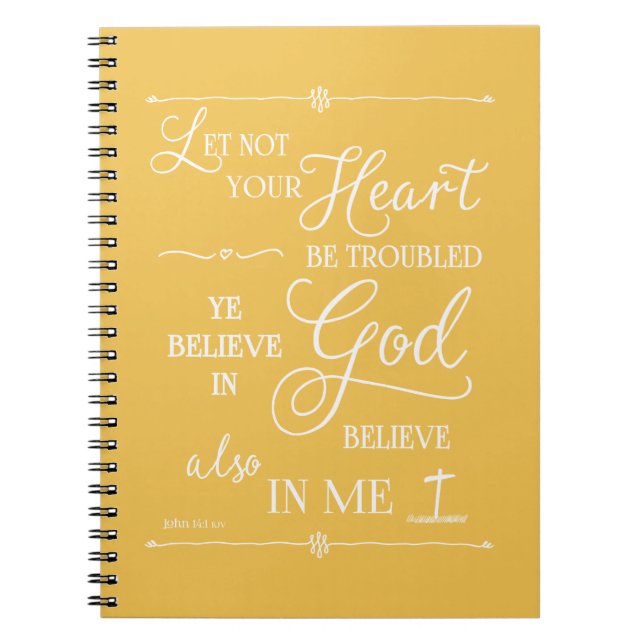 LET NOT
YOUR Heart
BE TROUBLED
YE
BELIEVE
IN God
also BELIEVE
IN ME
John 14:1